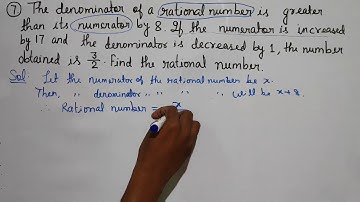 ⑦ The denominator of a rational number is greater
than its numerator by 8. If the numerator is increased
by 17 and the denominator is decreased by 1, the number
obtained is 3/2. Find the rational number.
Sol: Let the numerator of the rational number be x.
Then, " denominator " " " " will be x+8.
∴ Rational number = x